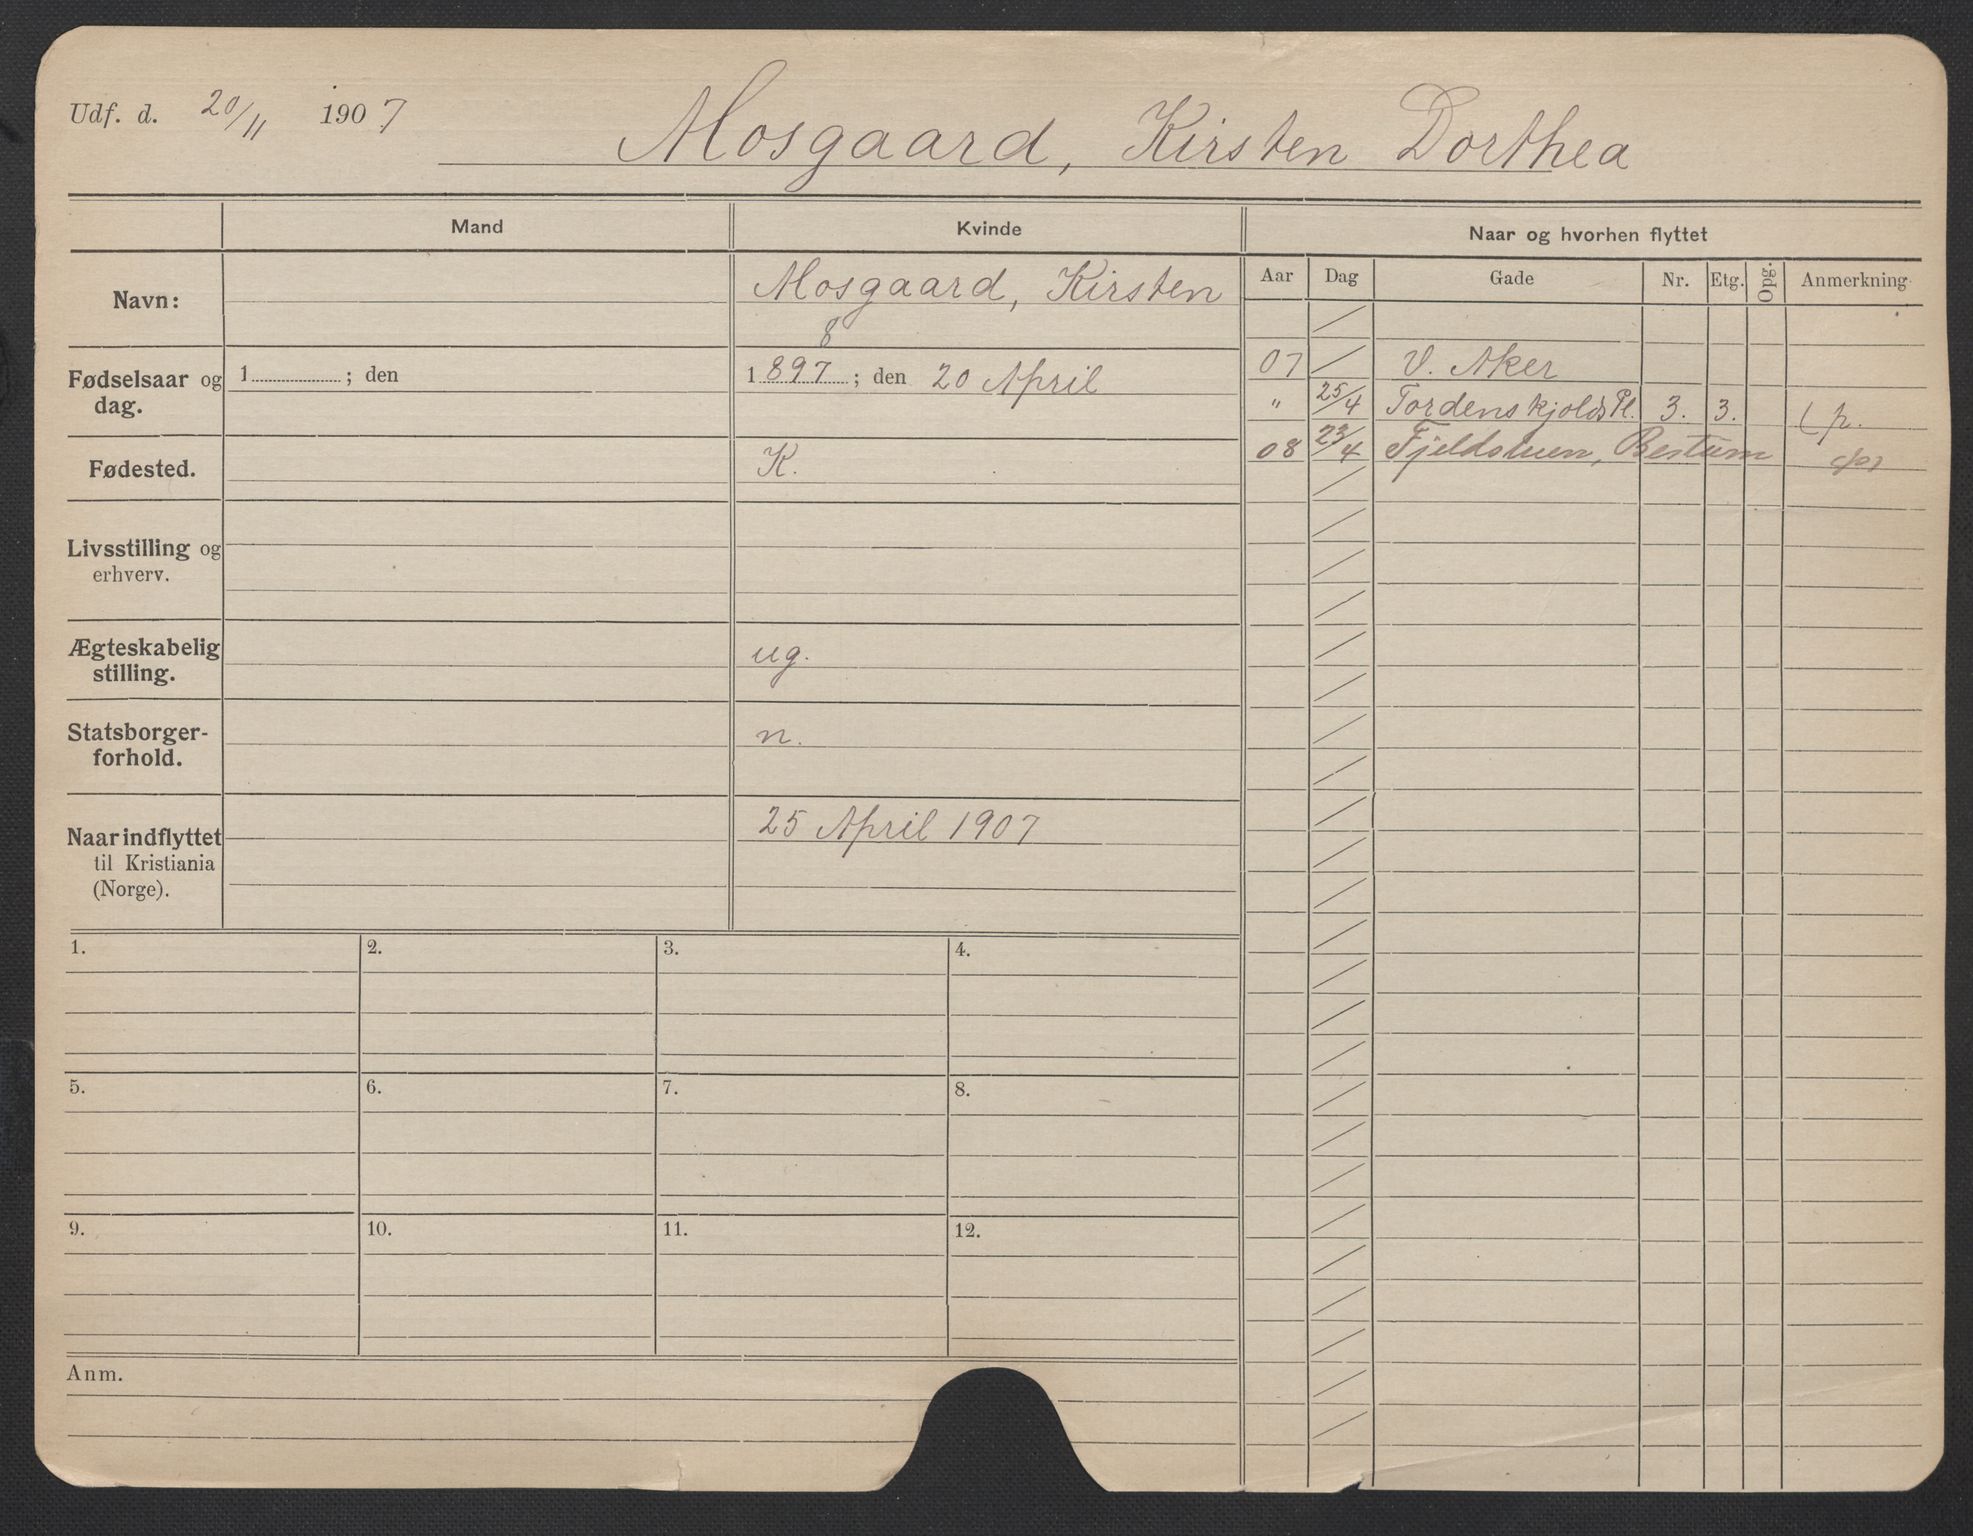 Udf. d. 20/11 1907
Mosgaard, Kirsten Dorthea
Mand
Kvinde
Naar og hvorhen flyttet
Aar Dag Gade Nr. Etg. Opg. Anmerkning
Navn:
Mosgaard, Kirsten
8
Fødselsaar og dag.
1 ; den
1897 ; den 20 April
Fødested.
K.
Livsstilling og
erhverv.
Ægteskabelig
stilling.
ug.
Statsborger-
forhold.
n.
Naar indflyttet
til Kristiania
(Norge).
25 April 1907
07 / V. Aker
" 25/4 Tordenskjolds Pl. 3. 3. p.
08 23/4 Fjeldstuen, Bestum
1. 2. 3. 4.
5. 6. 7. 8.
9. 10. 11. 12.
Anm.